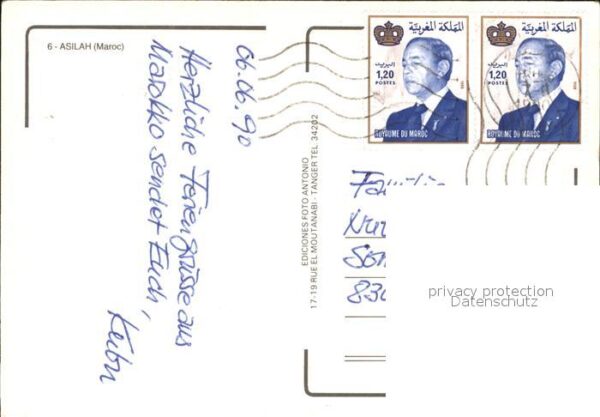 6 - ASILAH (Maroc)
06.06.90
Herzliche Feriengrüsse aus
Marokko sendet Euch,
EDICIONES FOTO ANTONIO
17-19 RUE EL MOUTANABI - TANGER TEL. 34202
المملكة المغربية
البريد
1,20
POSTES
ROYAUME DU MAROC
المملكة المغربية
البريد
1,20
POSTES
ROYAUME DU MAROC
privacy protection
Datenschutz